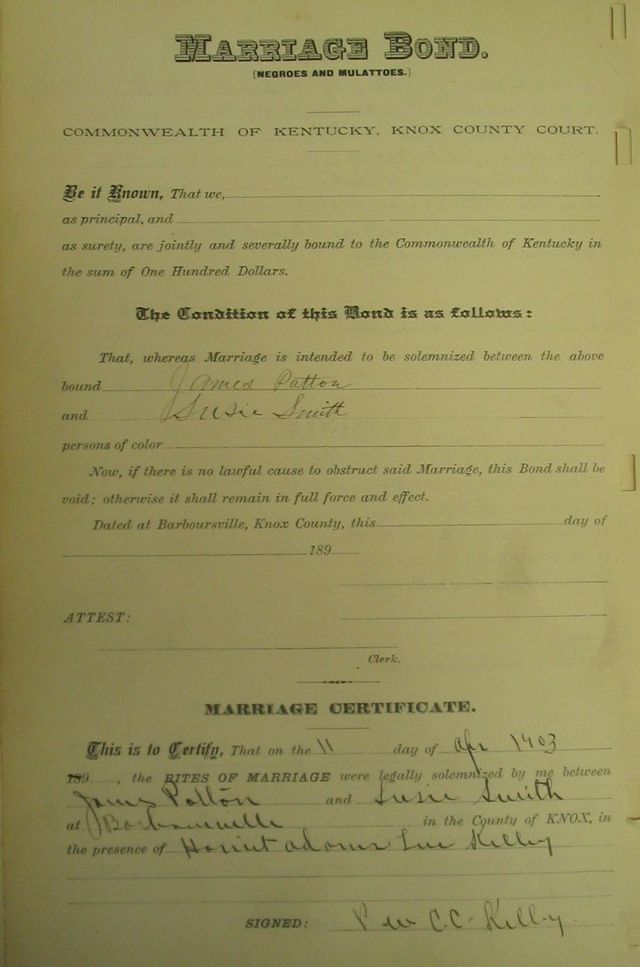 MARRIAGE BOND.
[NEGROES AND MULATTOES.]
COMMONWEALTH OF KENTUCKY, KNOX COUNTY COURT.
Be it Known, That we,
as principal, and
as surety, are jointly and severally bound to the Commonwealth of Kentucky in
the sum of One Hundred Dollars.
The Condition of this Bond is as follows:
That, whereas Marriage is intended to be solemnized between the above
bound James Patton
and Susie Smith
persons of color
Now, if there is no lawful cause to obstruct said Marriage, this Bond shall be
void; otherwise it shall remain in full force and effect.
Dated at Barboursville, Knox County, this day of
189
ATTEST:
Clerk.
MARRIAGE CERTIFICATE.
This is to Certify, That on the 11 day of Apr 1903
189 , the RITES OF MARRIAGE were legally solemnized by me between
James Patton and Susie Smith
at Barbourville in the County of KNOX, in
the presence of Adams Kelley
SIGNED: C.C. Kelley